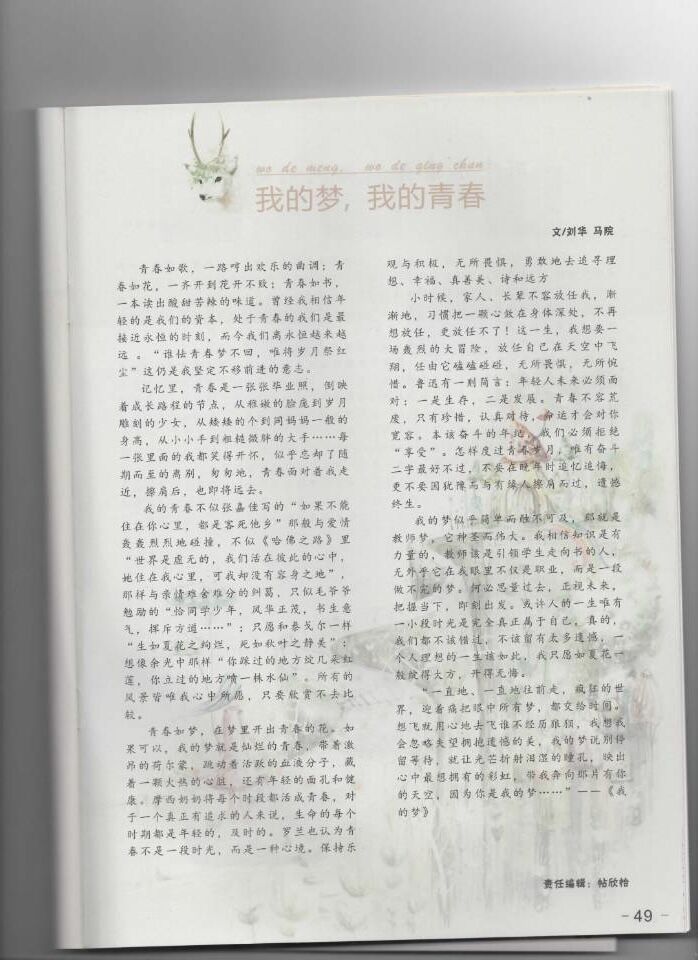 wo de meng, wo de qing chun
我的梦，我的青春
文/刘华 马院
青春如歌，一路哼出欢乐的曲调；青
春如花，一齐开到花开不败；青春如书，
一本读出酸甜苦辣的味道。曾经我相信年
轻的是我们的资本，处于青春的我们是最
接近永恒的时刻，而今我们离永恒越来越
远 。“谁怯青春梦不回，唯将岁月祭红
尘”这仍是我坚定不移前进的意志。
记忆里，青春是一张张毕业照，倒映
着成长路程的节点，从稚嫩的脸庞到岁月
雕刻的少女，从矮矮的个到同妈妈一般的
身高，从小小手到粗糙微胖的大手……每
一张里面的我都笑得开怀，似乎忘却了随
期而至的离别，匆匆地，青春面对着我走
近，擦肩后，也即将远去。
我的青春不似张嘉佳写的“如果不能
住在你心里，都是客死他乡”那般与爱情
轰轰烈烈地碰撞，不似《哈佛之路》里
“世界是虚无的，我们活在彼此的心中，
她住在我心里，可我却没有容身之地”，
那样与亲情难舍难分的纠葛，只似毛爷爷
勉励的“恰同学少年，风华正茂，书生意
气，挥斥方遒……”；只愿和泰戈尔一样
“生如夏花之绚烂，死如秋叶之静美”；
想像余光中那样“你踩过的地方绽几朵红
莲，你立过的地方喷一株水仙”。所有的
风景皆唯我心中所愿，只要欣赏不去比
较。
青春如梦，在梦里开出青春的花。如
果可以，我的梦就是灿烂的青春，带着激
昂的荷尔蒙，跳动着活跃的血液分子，藏
着一颗火热的心脏，还有年轻的面孔和健
康。摩西奶奶将每个时段都活成青春，对
于一个真正有追求的人来说，生命的每个
时期都是年轻的，及时的。罗兰也认为青
春不是一段时光，而是一种心境。保持乐
观与积极，无所畏惧，勇敢地去追寻理
想、幸福、真善美、诗和远方
小时候，家人、长辈不容放任我，渐
渐地，习惯把一颗心放在身体深处，不再
想放任，更放任不了！这一生，我想要一
场轰烈的大冒险，放任自己在天空中飞
翔，任由它磕磕碰碰，无所畏惧，无所惋
惜。鲁迅有一则简言：年轻人未来必须面
对：一是生存，二是发展。青春不容荒
废，只有珍惜，认真对待，命运才会对你
宽容。本该奋斗的年纪，我们必须拒绝
“享受”。怎样度过青春岁月，唯有奋斗
二字最好不过，不要在晚年时追忆追悔，
更不要因犹豫而与有缘人擦肩而过，遗憾
终生。
我的梦似乎简单而触不可及，那就是
教师梦，它神圣而伟大。我相信知识是有
力量的，教师该是引领学生走向书的人，
无外乎它在我眼里不仅是职业，而是一段
做不完的梦。何必思量过去，正视未来，
把握当下，即刻出发。或许人的一生唯有
一小段时光是完全真正属于自己，真的，
我们都不该错过，不该留有太多遗憾，一
个人理想的一生该如此，我只愿如夏花一
般绽得大方，开得无悔。
“一直地、一直地往前走，疯狂的世
界，迎着痛把眼中所有梦，都交给时间。
想飞就用心地去飞谁不经历狼狈，我想我
会忽略失望拥抱遗憾的美，我的梦说别停
留等待，就让光芒折射泪湿的瞳孔，映出
心中最想拥有的彩虹，带我奔向那片有你
的天空，因为你是我的梦……”——《我
的梦》
责任编辑：帖欣怡
- 49 -